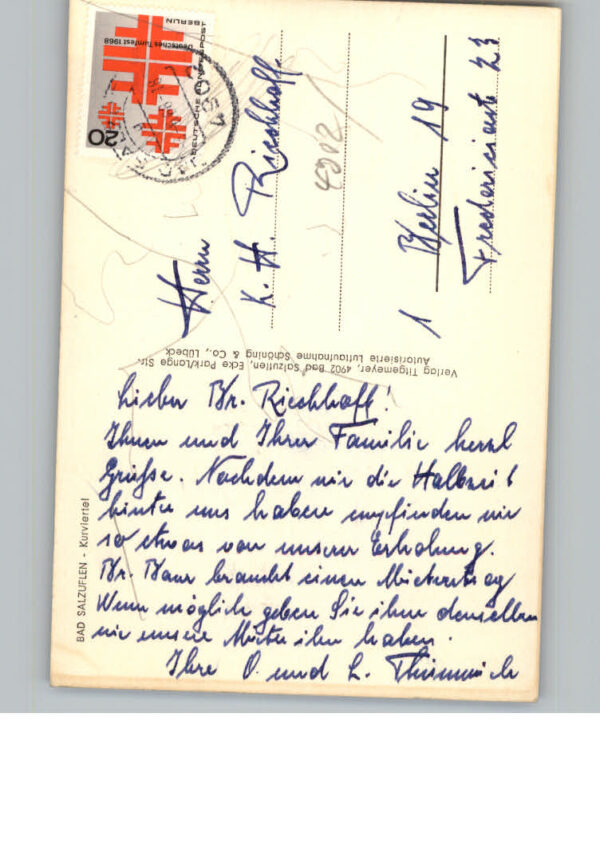 BAD SALZUFLEN - Kurviertel
Lieber Br. Rieckhoff!
Ihnen und Ihrer Familie herzl
Grüße. Nachdem wir die Halbzeit
hinter uns haben empfinden wir
so etwas von unserer Erholung.
Br. Baur braucht einen Mietvertrag
Wenn möglich geben Sie ihm denselben
wie unsere Mieter ihn haben.
Ihre O. und L.
Verlag Titgemeyer, 4902 Bad Salzuflen, Ecke Park/Lange Str.
Autorisierte Luftaufnahme Schöning & Co., Lübeck
Herrn
K. H. Rieckhoff
1 Berlin 19
Fredericiastr 23
4902/
Deutsches Turnfest 1968
DEUTSCHE BUNDESPOST
BERLIN
20